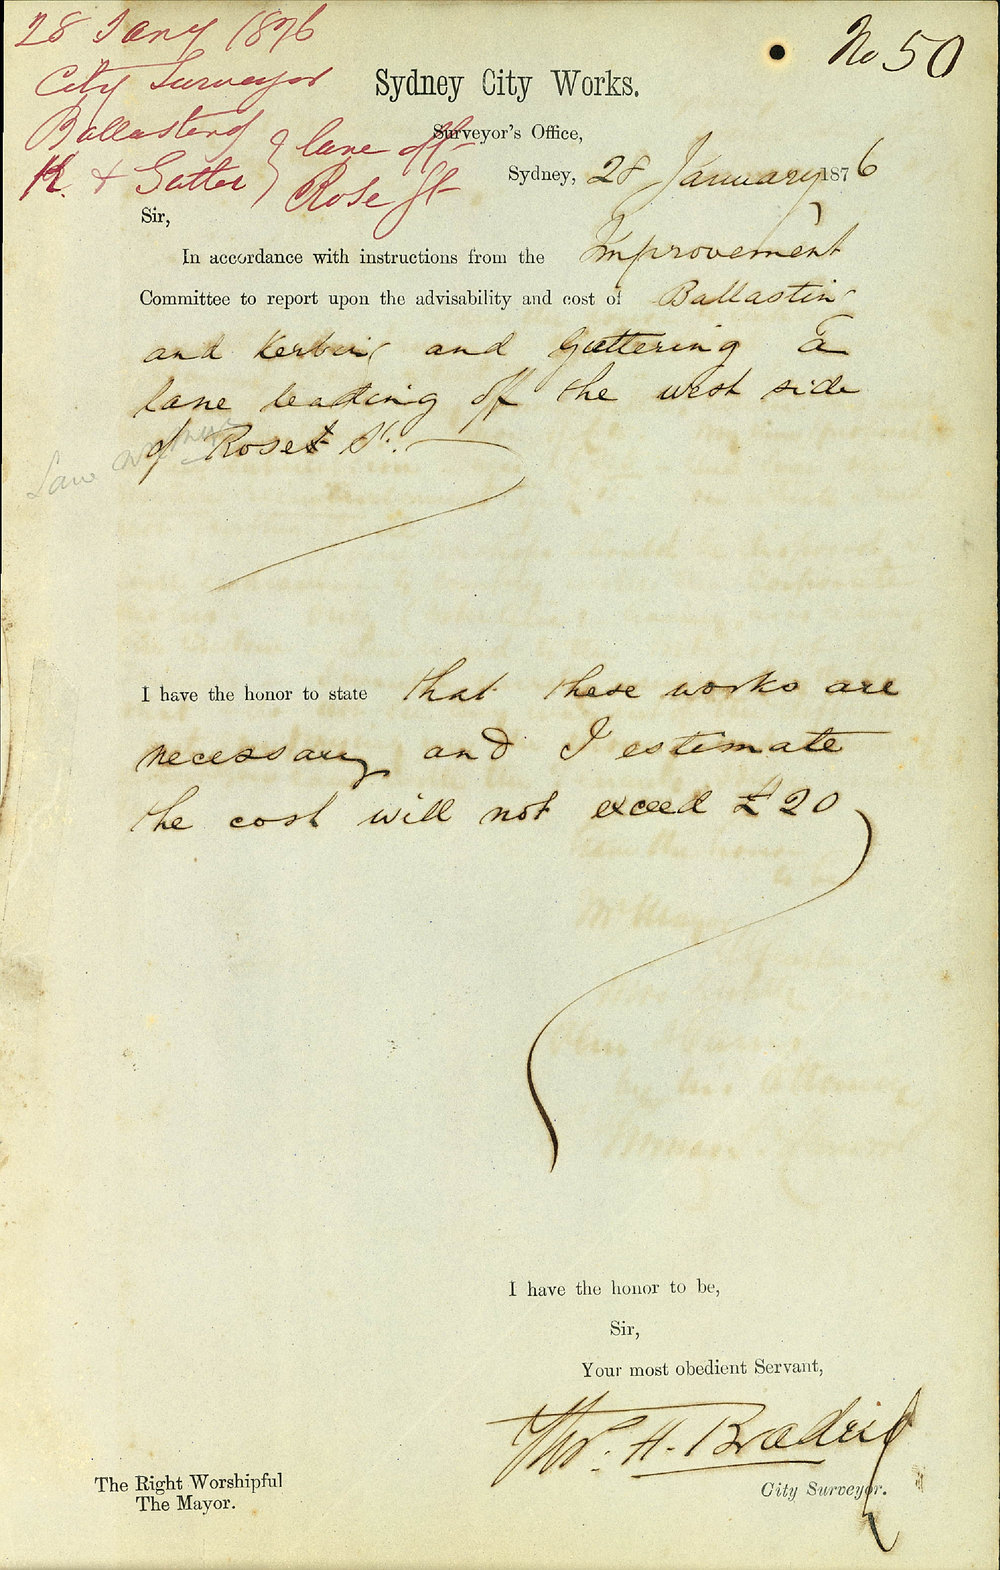 No 50
28 Jany 1876
City Surveyor
Ballasting
K. & Gutter } lane off
Rose St
Sydney City Works.
Surveyor's Office,
Sydney, 28 January 1876
Sir,
In accordance with instructions from the Improvement
Committee to report upon the advisability and cost of Ballasting
and Kerbing and Guttering a
lane leading off the west side
of Rose St.
I have the honor to state that these works are
necessary and I estimate
the cost will not exceed £20
I have the honor to be,
Sir,
Your most obedient Servant,
Thos. H. Bradridge
City Surveyor.
The Right Worshipful
The Mayor.